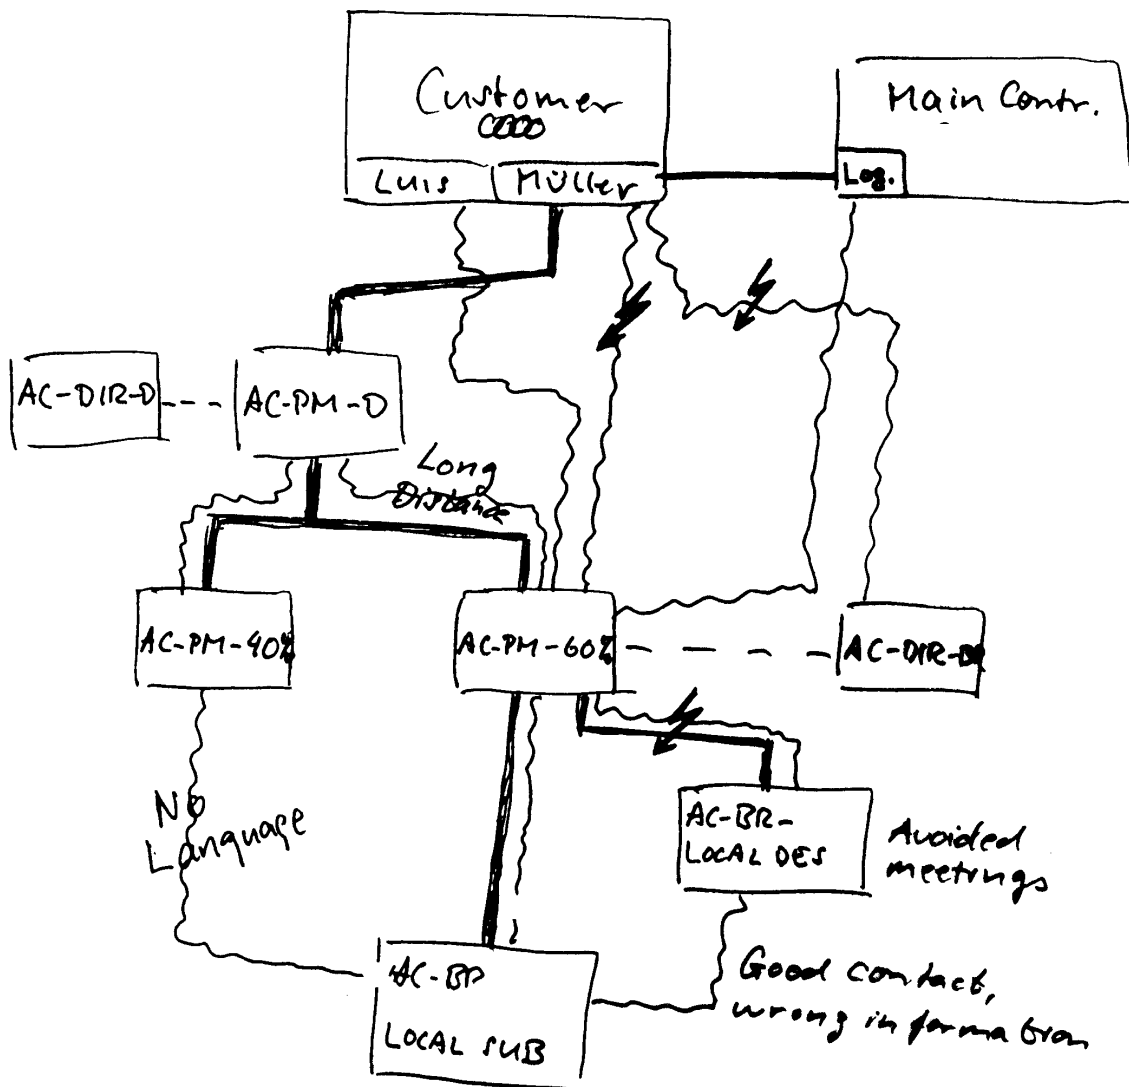 Customer
Main Contr.
Luis
Müller
Log.
AC-DIR-D
AC-PM-D
Long
Distance
AC-PM-40%
AC-PM-60%
AC-DIR-BR
No
Language
AC-BR-
LOCAL DES
Avoided
meetings
AC-BR
LOCAL SUB
Good contact,
wrong information